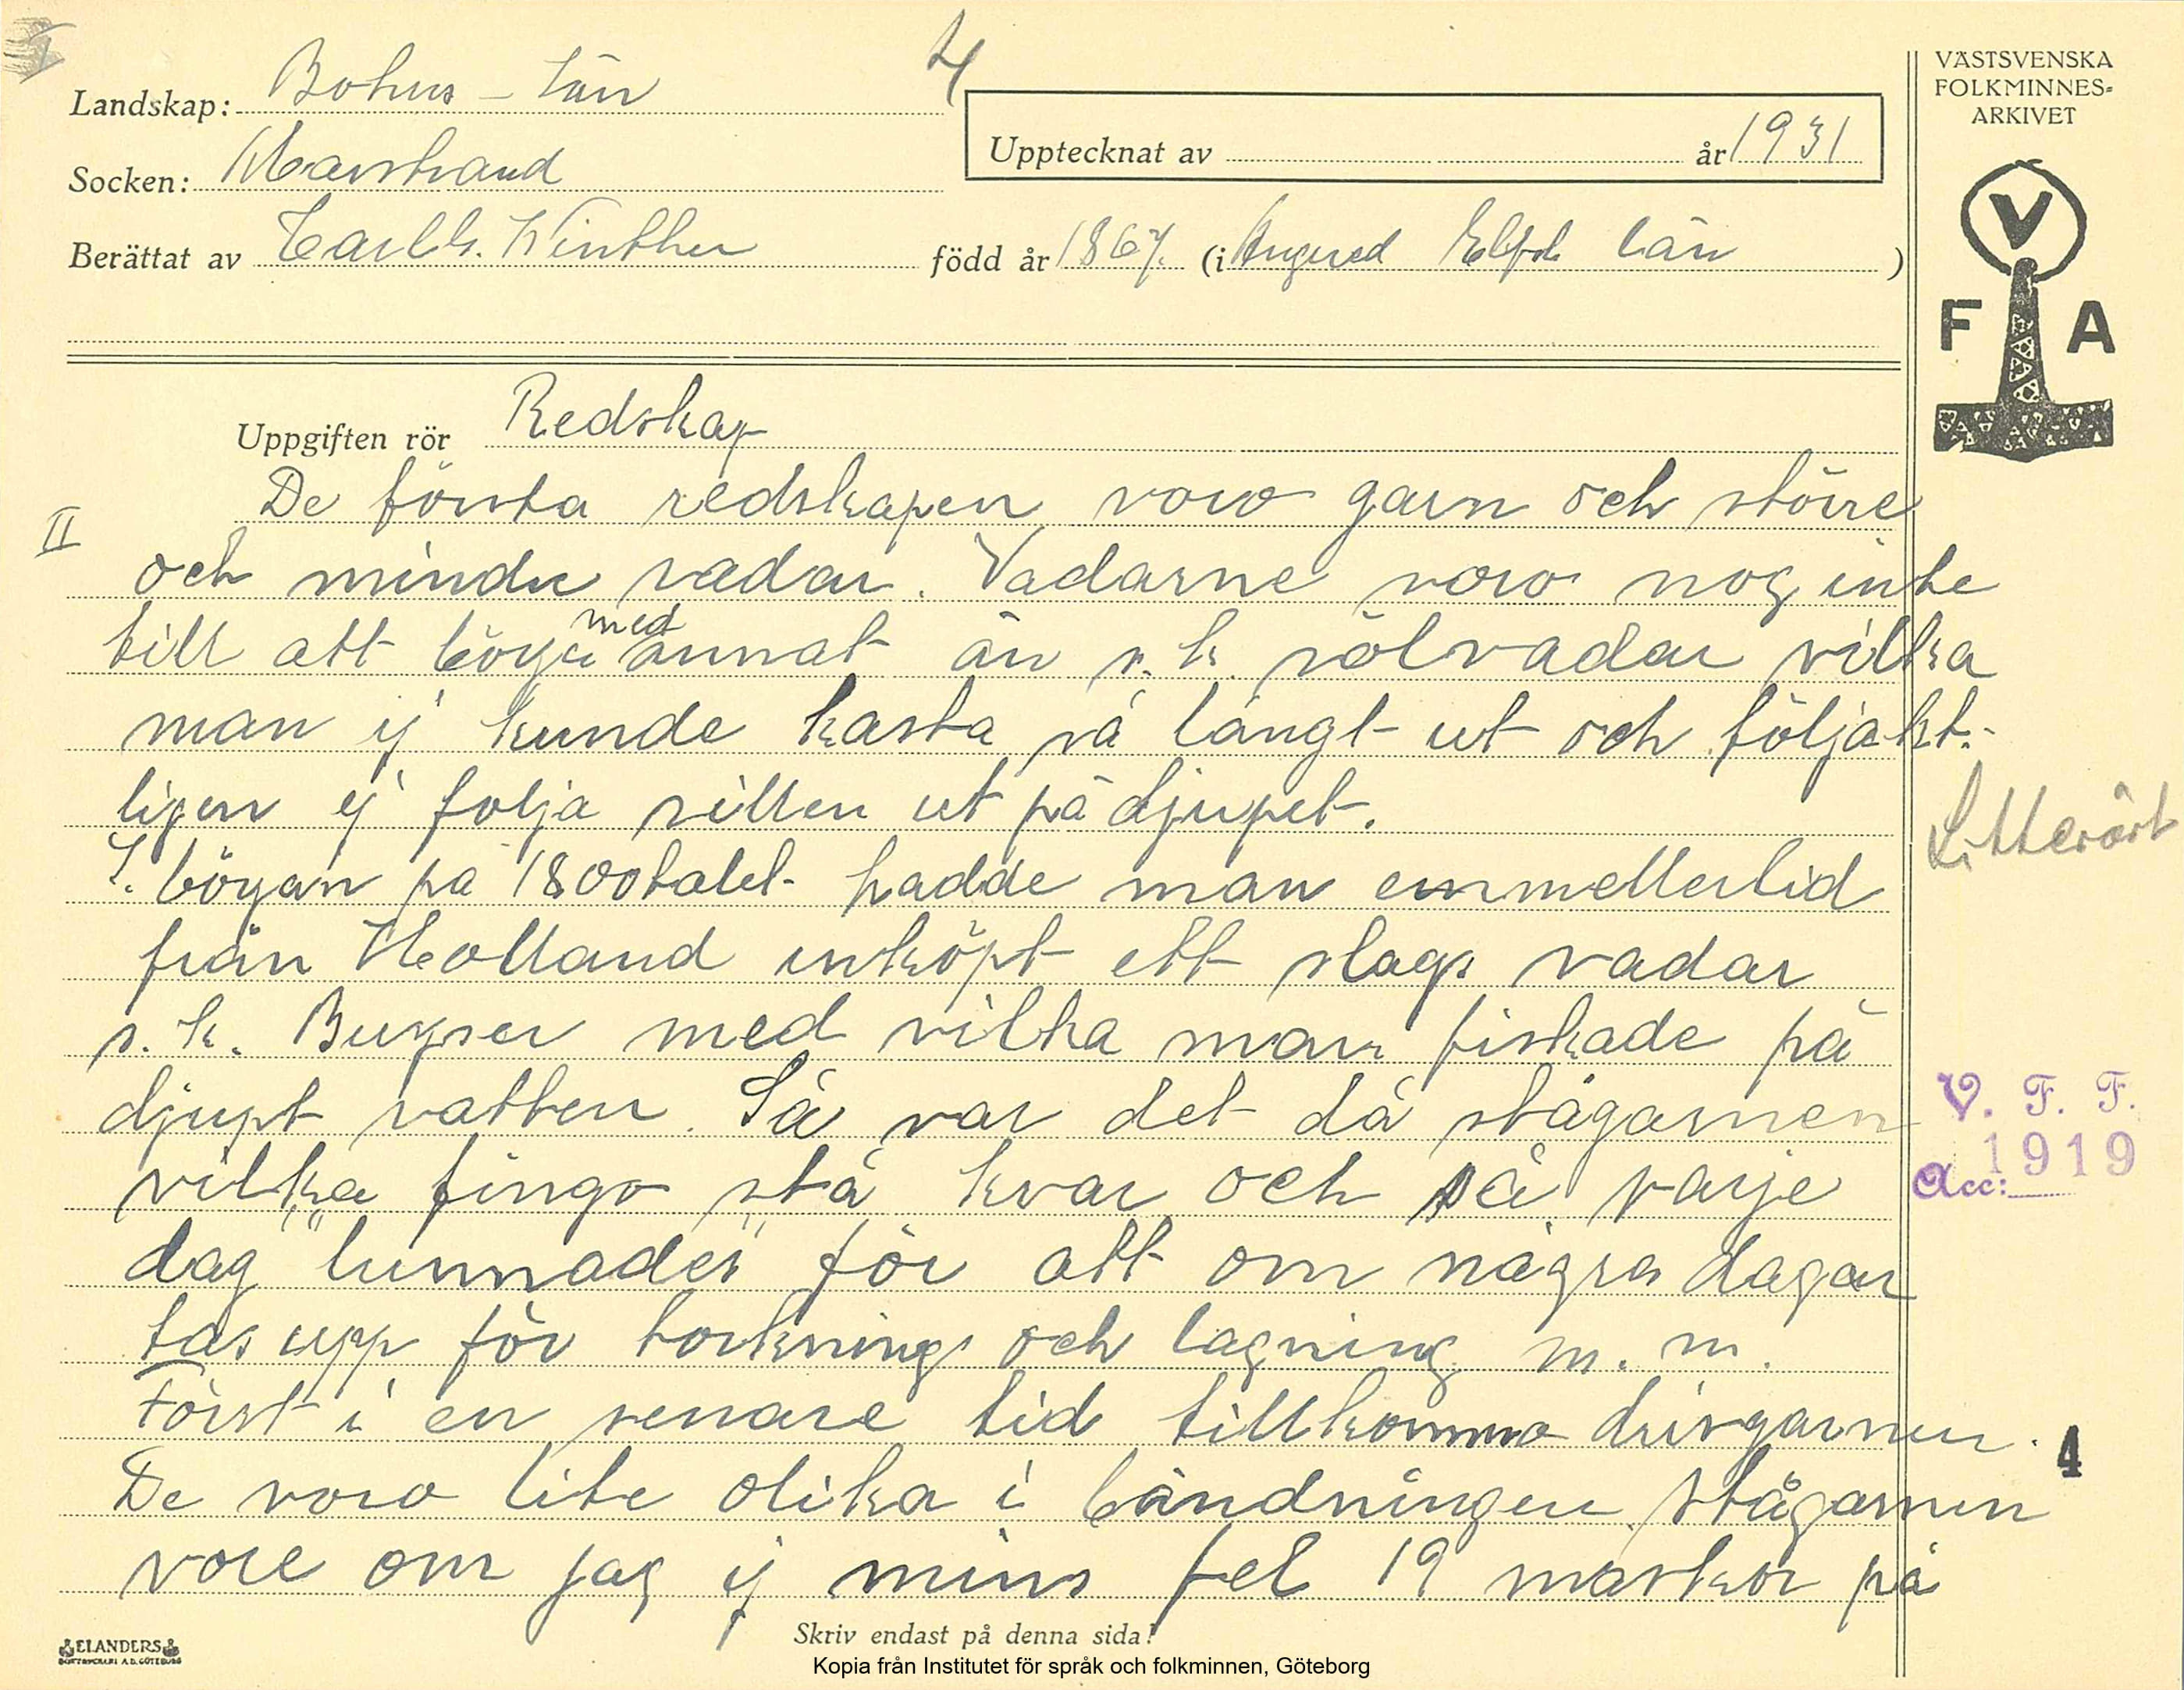 4
Landskap: Bohus-län
Socken: Marstrand
Upptecknat av år 1931
Berättat av Carl G. Winther född år 1867. (i Angered Elfsb. län)
VÄSTSVENSKA
FOLKMINNES-
ARKIVET
V
F A
Uppgiften rör Redskap
II
De första redskapen voro garn och större
och mindre vadar. Vadarne voro nog inte
till att börja med annat än s.k. sölvadar vilka
man ej kunde kasta så långt ut och följakt-
ligen ej folja sillen ut på djupet.
I. början på 1800talet hadde man emmellertid
från Holland inköpt ett slags vadar
s.k. Buxser med vilka man fiskade på
djupt vatten. Så var det då stågarnen
vilka fingo stå kvar och så varje
dag "lunnades" för att om några dagar
tas upp för torkning och lagning m.m.
Först i en senare tid tillkommo drivgarnen.
De voro lite olika i bändningen. Stågarnen
vore om jag ej mins fel 19 maskor på
Litterärt
V. F. F.
1919
Acc:
4
Skriv endast på denna sida!
ELANDERS
BOKTRYCKERI A.B. GÖTEBORG
Kopia från Institutet för språk och folkminnen, Göteborg